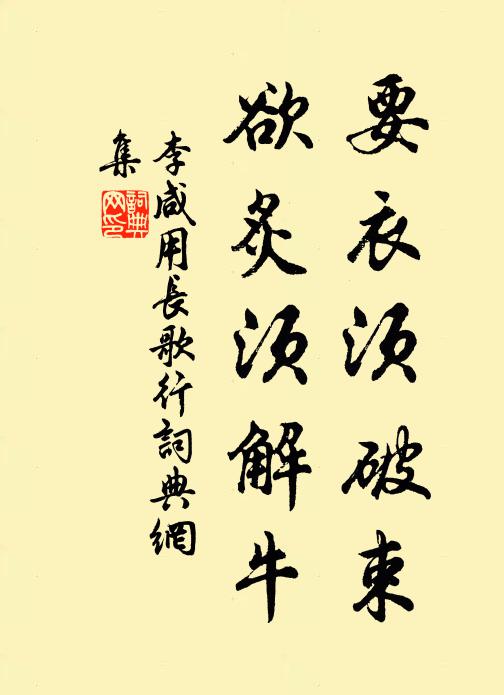 要衣须破束
欲炙须解牛
李咸用長歌行詞典網
集
詞典
网印